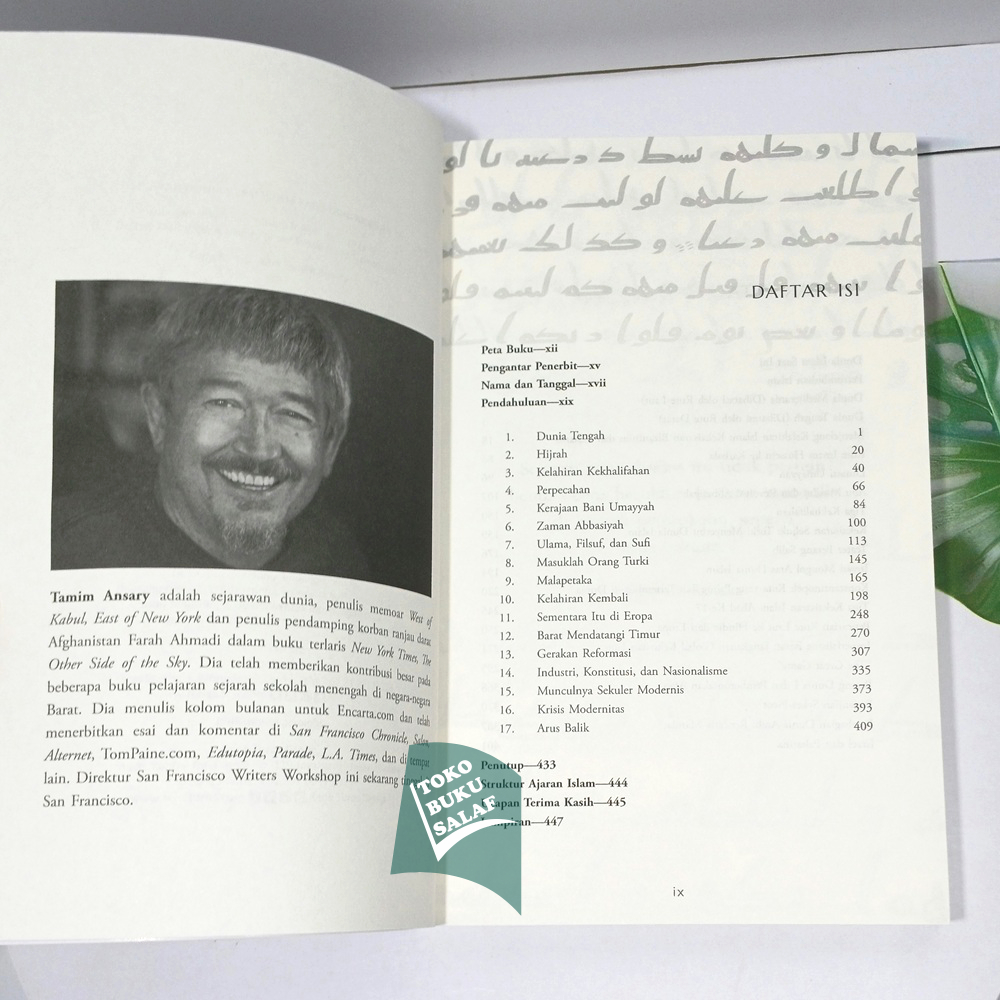 Tamim Ansary adalah sejarawan dunia, penulis memoar West of
Kabul, East of New York dan penulis pendamping korban ranjau darat
Afghanistan Farah Ahmadi dalam buku terlaris New York Times, The
Other Side of the Sky. Dia telah memberikan kontribusi besar pada
beberapa buku pelajaran sejarah sekolah menengah di negara-negara
Barat. Dia menulis kolom bulanan untuk Encarta.com dan telah
menerbitkan esai dan komentar di San Francisco Chronicle, Salon,
Alternet, TomPaine.com, Edutopia, Parade, L.A. Times, dan di tempat
lain. Direktur San Francisco Writers Workshop ini sekarang
San Francisco.
DAFTAR ISI
Peta Buku—xii
Pengantar Penerbit—xv
Nama dan Tanggal—xvii
Pendahuluan—xix
1. Dunia Tengah 1
2. Hijrah 20
3. Kelahiran Kekhalifahan 40
4. Perpecahan 66
5. Kerajaan Bani Umayyah 84
6. Zaman Abbasiyah 100
7. Ulama, Filsuf, dan Sufi 113
8. Masuklah Orang Turki 145
9. Malapetaka 165
10. Kelahiran Kembali 198
11. Sementara Itu di Eropa 248
12. Barat Mendatangi Timur 270
13. Gerakan Reformasi 307
14. Industri, Konstitusi, dan Nasionalisme 335
15. Munculnya Sekuler Modernis 373
16. Krisis Modernitas 393
17. Arus Balik 409
Penutup—433
Struktur Ajaran Islam—444
Ucapan Terima Kasih—445
Lampiran—447
ix
TOKO
BUKU
SALAF